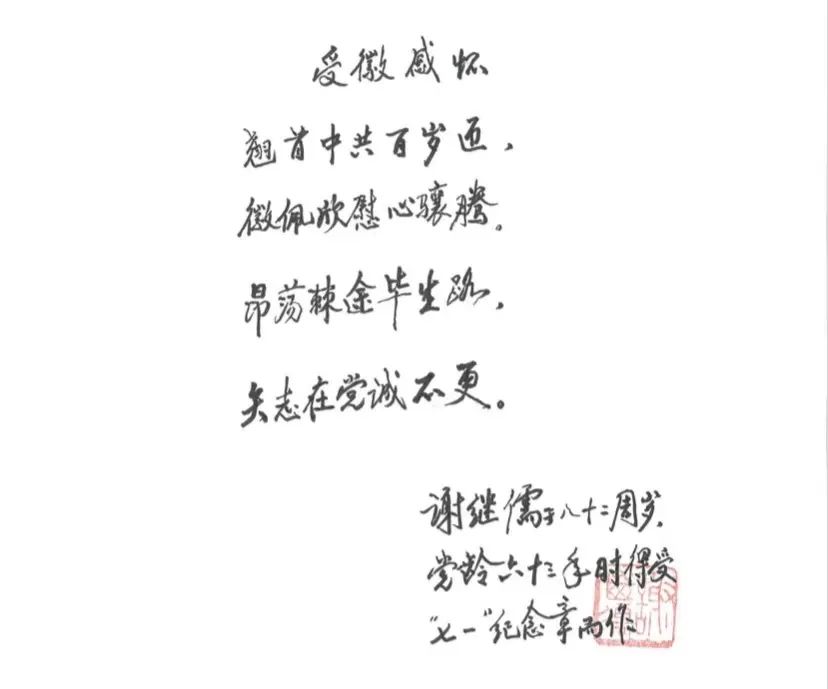 受徽感怀
翘首中共百岁迎，
徽佩欣慰心骧腾。
昂荡棘途毕生路，
矢志在党诚不更。
谢继儒于八十二周岁，
党龄六十三年时得受
“七一”纪念章而作